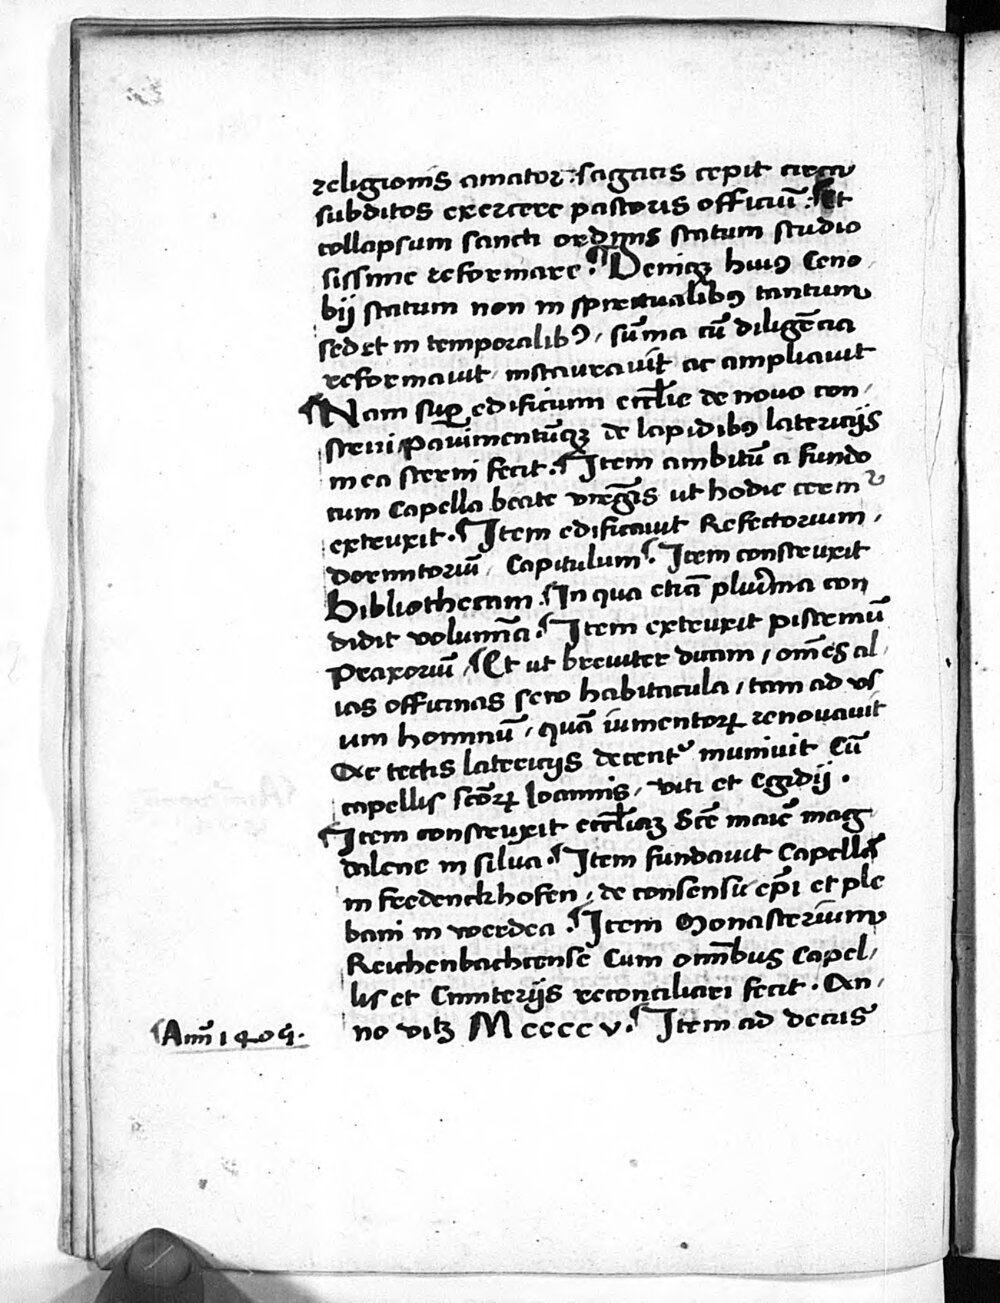 religionis amator: sagacis cepit circa
subditos exercere pastoris officiū. Et
collapsum sancti ordinis statum studio
sissime reformare. Deniqꝫ huiꝰ Ceno
bij statum non in spiritualibꝰ tantum
sed et in temporalibꝰ, sūma cū diligēcia
reformauit, instaurauit ac ampliauit
Nam suꝑ edificium eccl̄ie de nouo con,
strui pauimentūqꝫ de lapidibꝰ latericijs
in ea sterni fecit. Item ambitū a fundo
cum Capella beate virgīs ut hodie cernitᷣ
extruxit. Item edificauit Refectorium,
dormitoriū, Capitulum. Item construxit
Bibliothecam. In qua etiā pluīma con
didit volumīa. Item extruxit pistrinū
Praxoriū, Et ut breuiter dicam, om̄es al,
ias officinas seu habitacula, tam ad vs
um hominū, quā iumentorꝝ renouauit
Ac tectis latericijs decentᷣ muniuit Cū
capellis sctōrꝝ Ioannis, viti et Egidij.
Item construxit eccl̄iaꝫ Scē marie mag
dalene in silua. Item fundauit Capellā
in Fredenckhofen, de consensu ep̄i et ple
bani in werdea. Item Monasterium
Reichenbachcense Cum om̄ibus Capel,
lis et Cimiterijs reconciliari fecit. An,
no vitꝫ Mccccv. Item ad decus
Anī 1405.